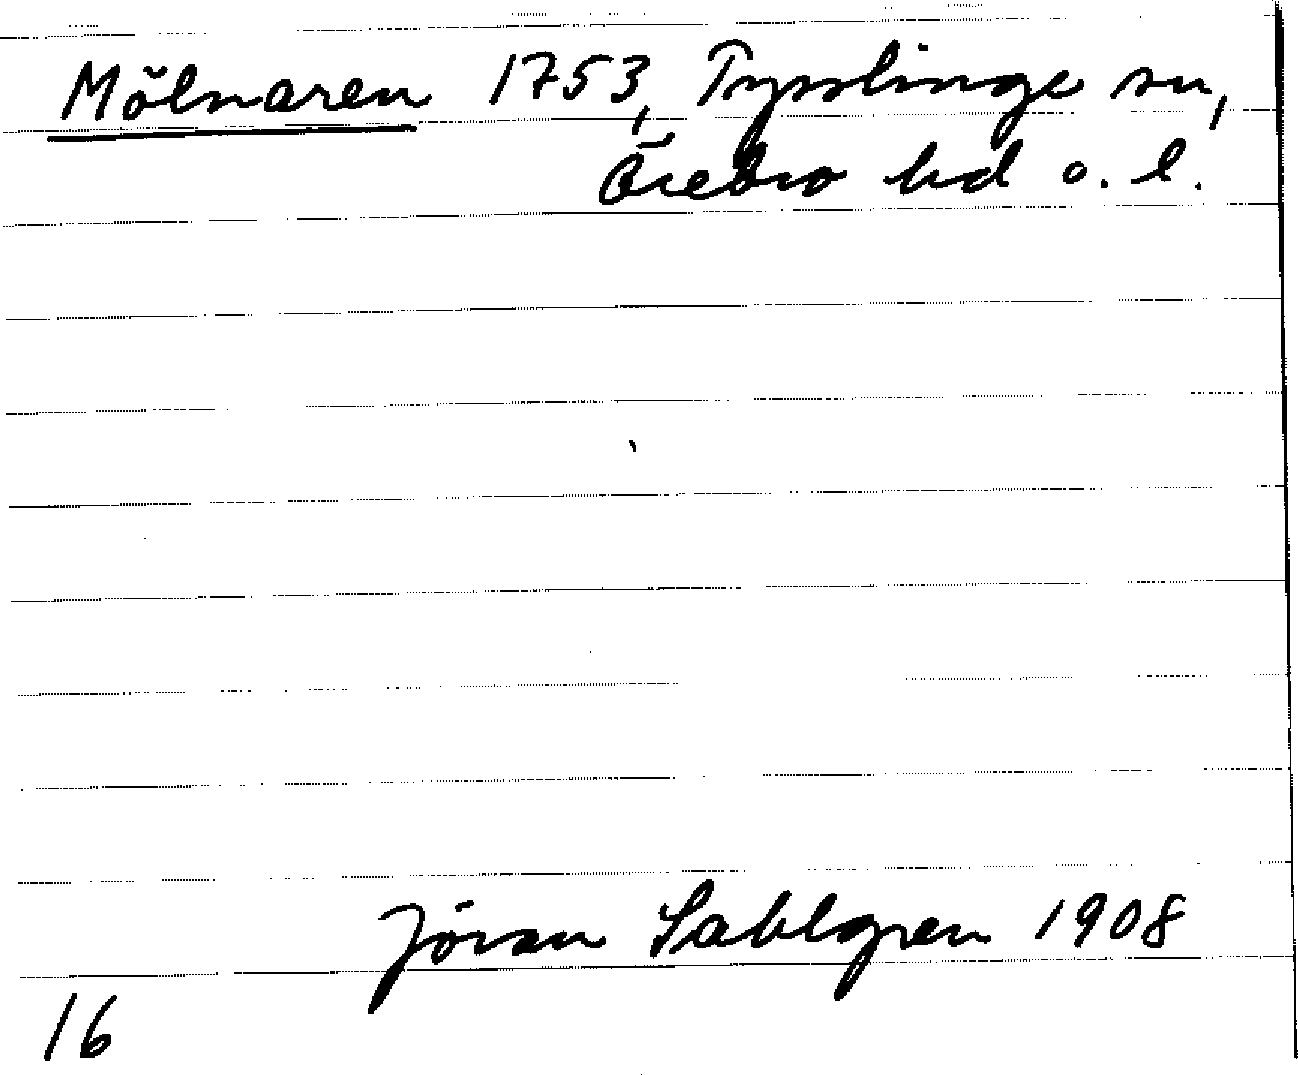 Mölnaren 1753, Tysslinge sn,
Örebro hd o. l.
Jöran Sahlgren 1908
16